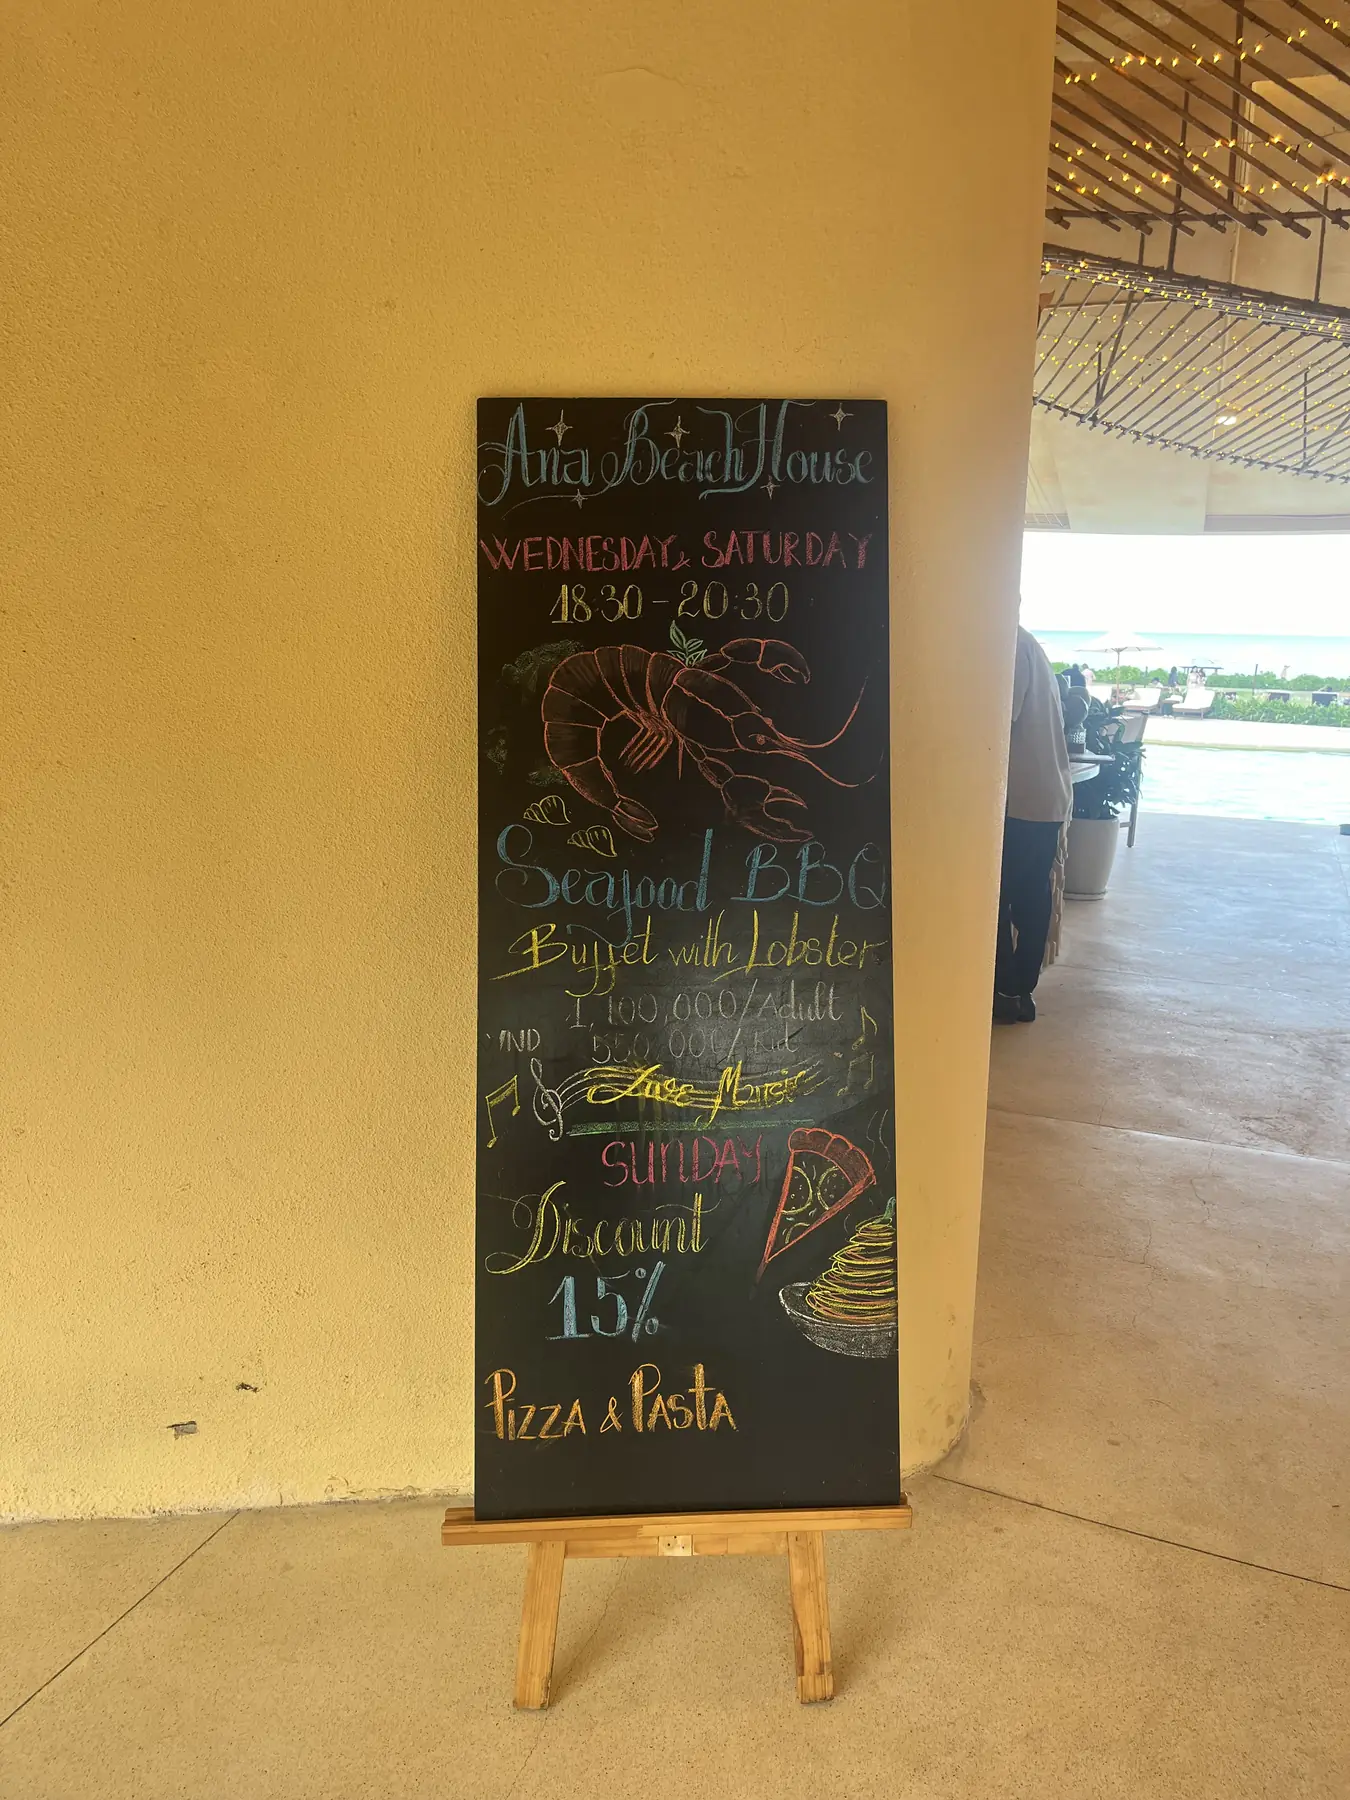 Ana Beach House
WEDNESDAY & SATURDAY
18:30 - 20:30
Seafood BBQ
Buffet with Lobster
1,100,000/Adult
VND 550,000/Kid
Live Music
SUNDAY
Discount
15%
PIZZA & PASTA